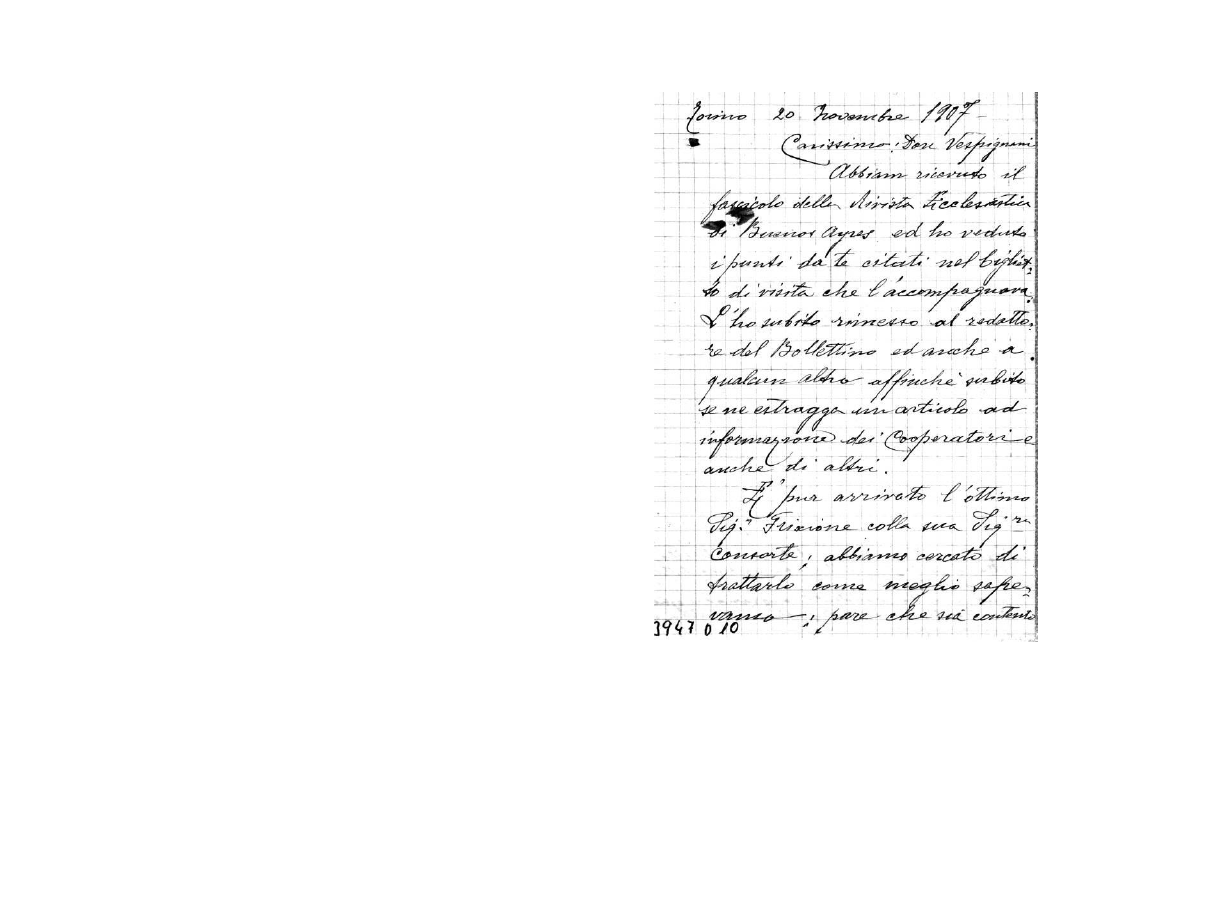 Torino 20 Novembre 1907 -
Carissimo Don Vespignani
Abbiam ricevuto il
fascicolo della Rivista Ecclesiastica
di Buenos Ayres ed ho veduto
i punti da te citati nel bigliet-
to di visita che l'accompagnava.
L'ho subito rimesso al redatto-
re del Bollettino ed anche a
qualcun altro affinchè subito
se ne estragga un articolo ad
informazione dei Cooperatori e
anche di altri.
E' pur arrivato l'ottimo
Sig.r colla sua Sig.ra
Consorte; abbiamo cercato di
trattarlo come meglio sape-
vamo —; pare che sia contento
3947 D 10